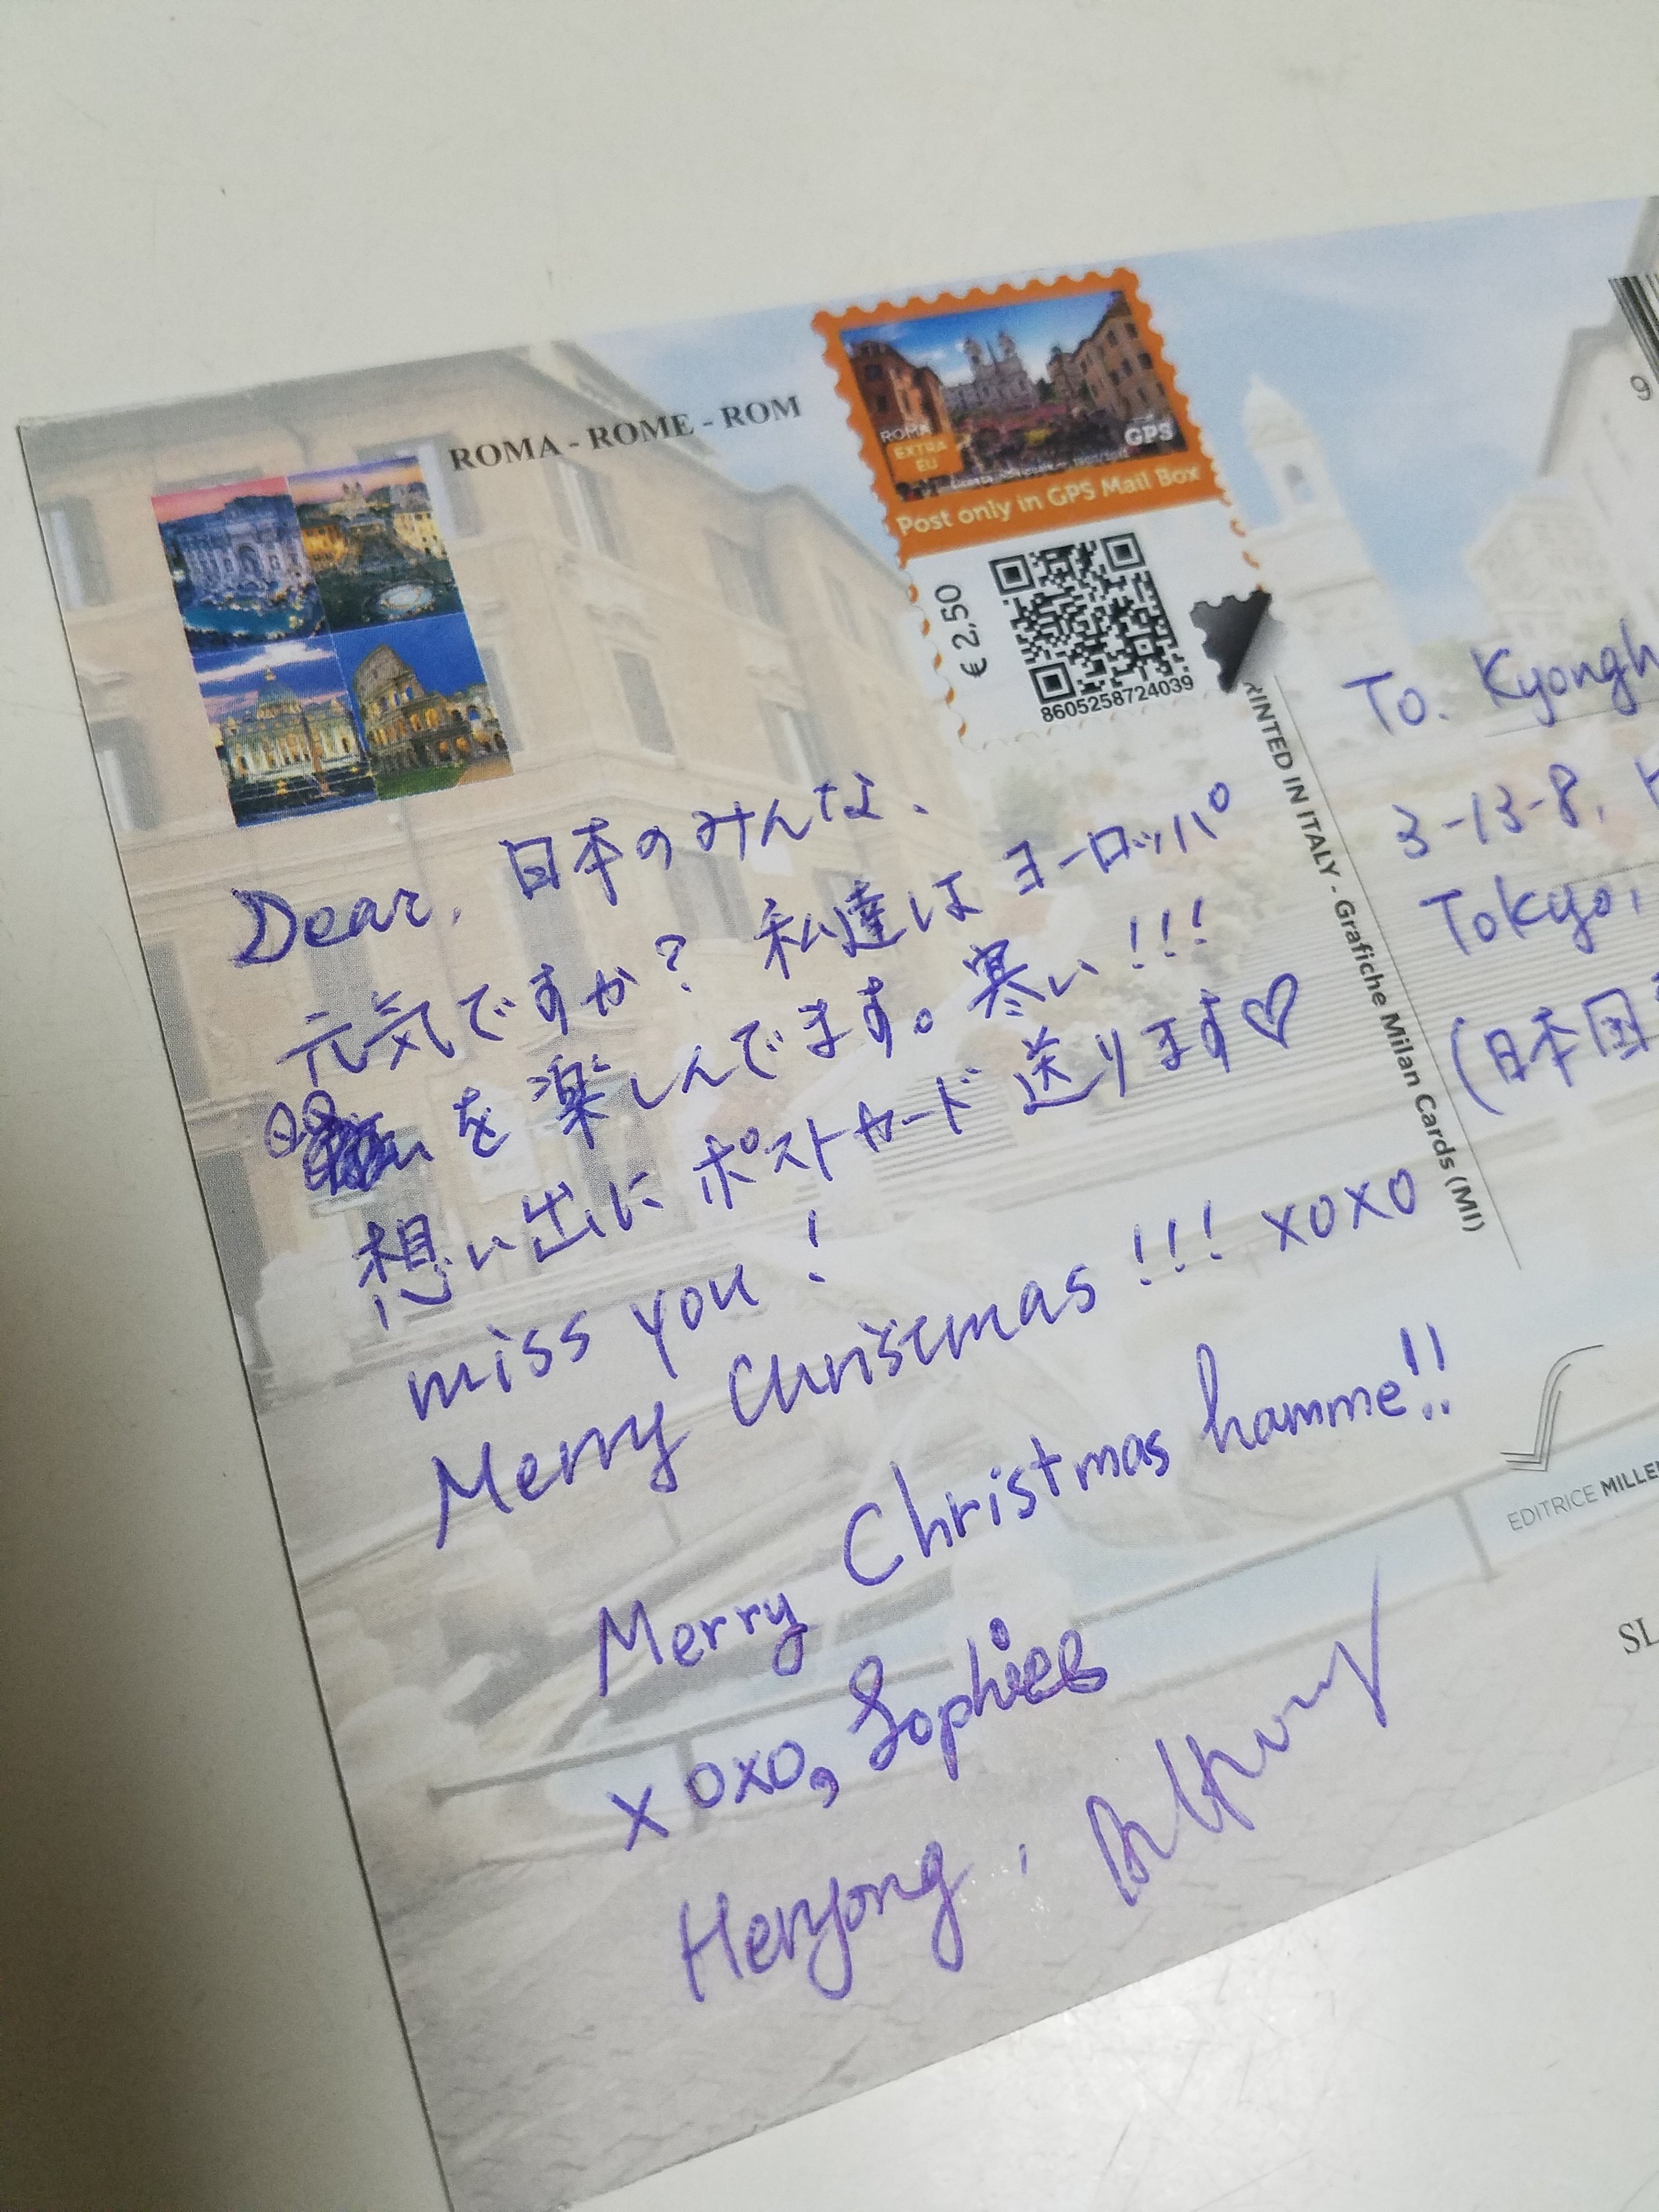 ROMA - ROME - ROM
ROMA
EXTRA
EU
GPS
Post only in GPS Mail Box
€ 2,50
8605258724039
9
RINTED IN ITALY - Grafiche Milan Cards (MI)
Dear, 日本のみんな、
元気ですか? 私達はヨーロッパ
を楽しんでます。寒い!!!
想い出にポストカード送ります♡
miss you!
Merry Christmas!!! xoxo
Merry Christmas hamme!!
xoxo, Sophies
To. Kyongh
3-13-8,
Tokyo,
(日本国
EDITRICE MILLE
SL